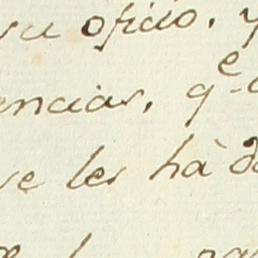 su oficio, y
encias, q^e
se les hà d